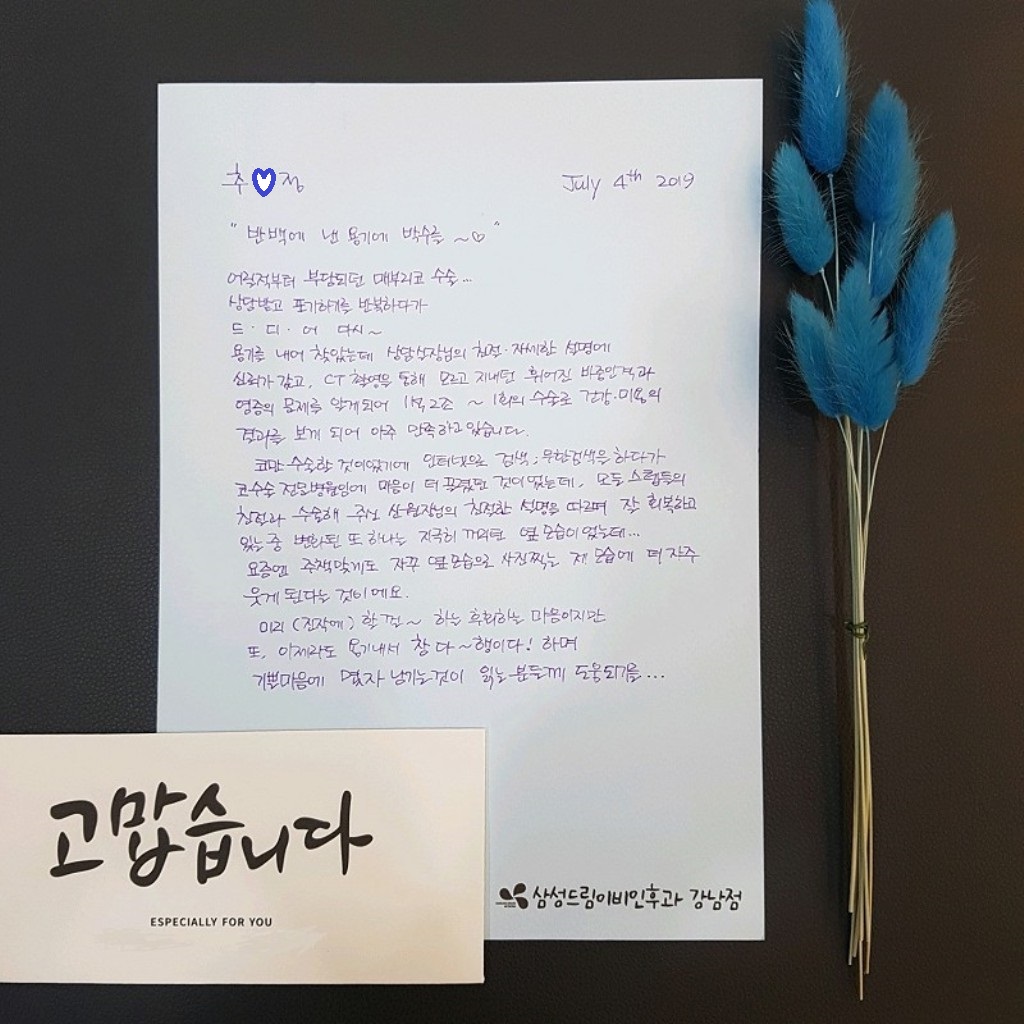 추♡정
July 4th 2019
"반백에 낸 용기에 박수를 ~♡"
어릴적부터 부담되던 매부리코 수술...
상담받고 포기하기를 반복하다가
드·디·어 다시~
용기를 내어 찾았는데 상담실장님의 친절·자세한 설명에
신뢰가 갔고, CT 촬영을 통해 모르고 지내던 휘어진 비중안격과
염증의 문제를 알게되어 1석2조 ~ 1회의 수술로 건강·미용의
결과를 보게 되어 아주 만족하고 있습니다.
코만 수술할 것이었기에 인터넷으로 검색; 무한검색을 하다가
코수술 전문병원임에 마음이 더 끌렸던 것이었는데, 모든 스텝들의
친절과 수술해 주신 신원장님의 친절한 설명을 따르며 잘 회복하고
있는 중 변화된 또 하나는 지극히 꺼리던 옆모습이었는데...
요즘엔 주책맞게도 자꾸 옆모습으로 사진찍는 제 모습에 더 자주
웃게 된다는 것이에요.
미리 (진작에) 할 걸~ 하는 후회하는 마음이지만
또, 이제라도 용기내서 참 다~행이다! 하며
기쁜마음에 몇자 남기는것이 읽는 분들께 도움되기를...
고맙습니다
ESPECIALLY FOR YOU
삼성드림이비인후과 강남점